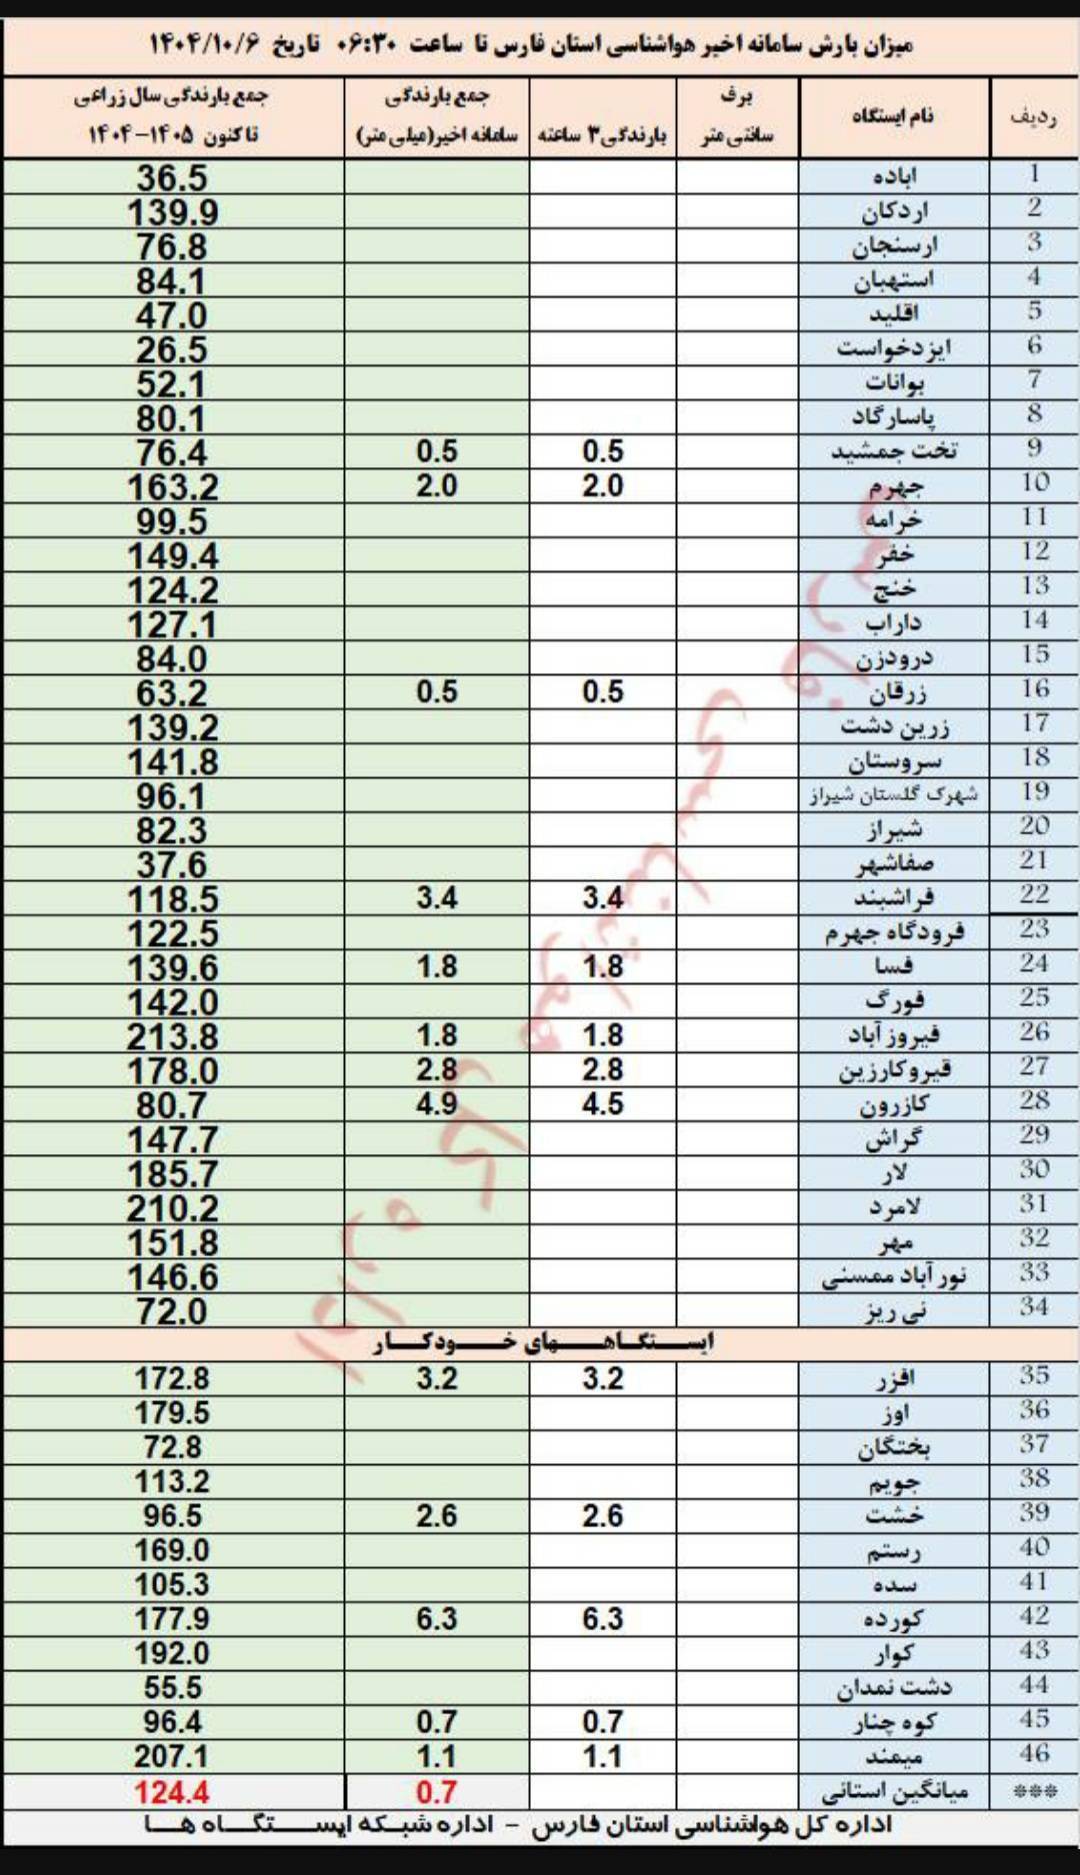 میزان بارش سامانه اخیر هواشناسی استان فارس تا ساعت ۰۶:۳۰ تاریخ ۱۴۰۴/۱۰/۶
ردیف نام ایستگاه برف سانتی متر بارندگی۳ ساعته جمع بارندگی سامانه اخیر(میلی متر) جمع بارندگی سال زراعی تا کنون ۱۴۰۵-۱۴۰۴
1 اباده 36.5
2 اردکان 139.9
3 ارسنجان 76.8
4 استهبان 84.1
5 اقلید 47.0
6 ایزدخواست 26.5
7 بوانات 52.1
8 پاسارگاد 80.1
9 تخت جمشید 0.5 0.5 76.4
10 جهرم 2.0 2.0 163.2
11 خرامه 99.5
12 خفر 149.4
13 خنج 124.2
14 داراب 127.1
15 درودزن 84.0
16 زرقان 0.5 0.5 63.2
17 زرین دشت 139.2
18 سروستان 141.8
19 شهرک گلستان شیراز 96.1
20 شیراز 82.3
21 صفاشهر 37.6
22 فراشبند 3.4 3.4 118.5
23 فرودگاه جهرم 122.5
24 فسا 1.8 1.8 139.6
25 فورگ 142.0
26 فیروز آباد 1.8 1.8 213.8
27 قیروکارزین 2.8 2.8 178.0
28 کازرون 4.5 4.9 80.7
29 گراش 147.7
30 لار 185.7
31 لامرد 210.2
32 مهر 151.8
33 نور آباد ممسنی 146.6
34 نی ریز 72.0
ایستگاههای خودکار
35 افزر 3.2 3.2 172.8
36 اوز 179.5
37 بختگان 72.8
38 جویم 113.2
39 خشت 2.6 2.6 96.5
40 رستم 169.0
41 سده 105.3
42 کورده 6.3 6.3 177.9
43 کوار 192.0
44 دشت نمدان 55.5
45 کوه چنار 0.7 0.7 96.4
46 میمند 1.1 1.1 207.1
*** میانگین استانی 0.7 124.4
اداره کل هواشناسی استان فارس - اداره شبکه ایستگاه ها
اداره کل هواشناسی فارس